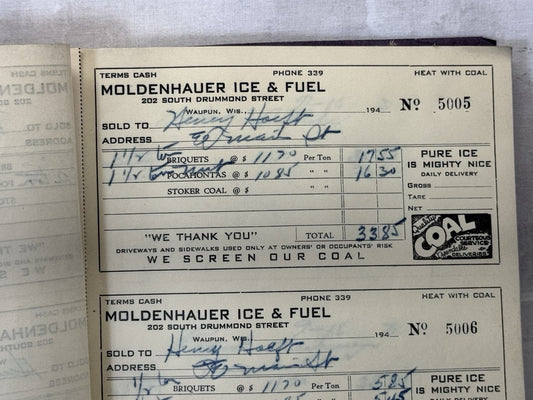 TERMS CASH PHONE 339 HEAT WITH COAL
MOLDENHAUER ICE & FUEL
202 SOUTH DRUMMOND STREET
WAUPUN, WIS., 194 No 5005
SOLD TO Henry Hoeft
ADDRESS E main St
1 1/2 ton BRIQUETS @ $ 11 70 Per Ton 17 55
1 1/2 ton Nut POCAHONTAS @ $ 10 85 " " 16 30
STOKER COAL @ $ " "
PURE ICE
IS MIGHTY NICE
DAILY DELIVERY
GROSS
TARE
NET
"WE THANK YOU" TOTAL 33 85
DRIVEWAYS AND SIDEWALKS USED ONLY AT OWNERS' OR OCCUPANTS' RISK
WE SCREEN OUR COAL
Quality
COAL
COURTEOUS
SERVICE
DELIVERIES
TERMS CASH PHONE 339 HEAT WITH COAL
MOLDENHAUER ICE & FUEL
202 SOUTH DRUMMOND STREET
WAUPUN, WIS., 194 No 5006
SOLD TO Henry Hoeft
ADDRESS E main St
1/2 ton BRIQUETS @ $ 11 70 Per Ton 5 85
PURE ICE
IS MIGHTY NICE
DAILY DELIVERY
TERMS CASH
MOLDENH
202 SOU
SOLD TO
ADDRESS